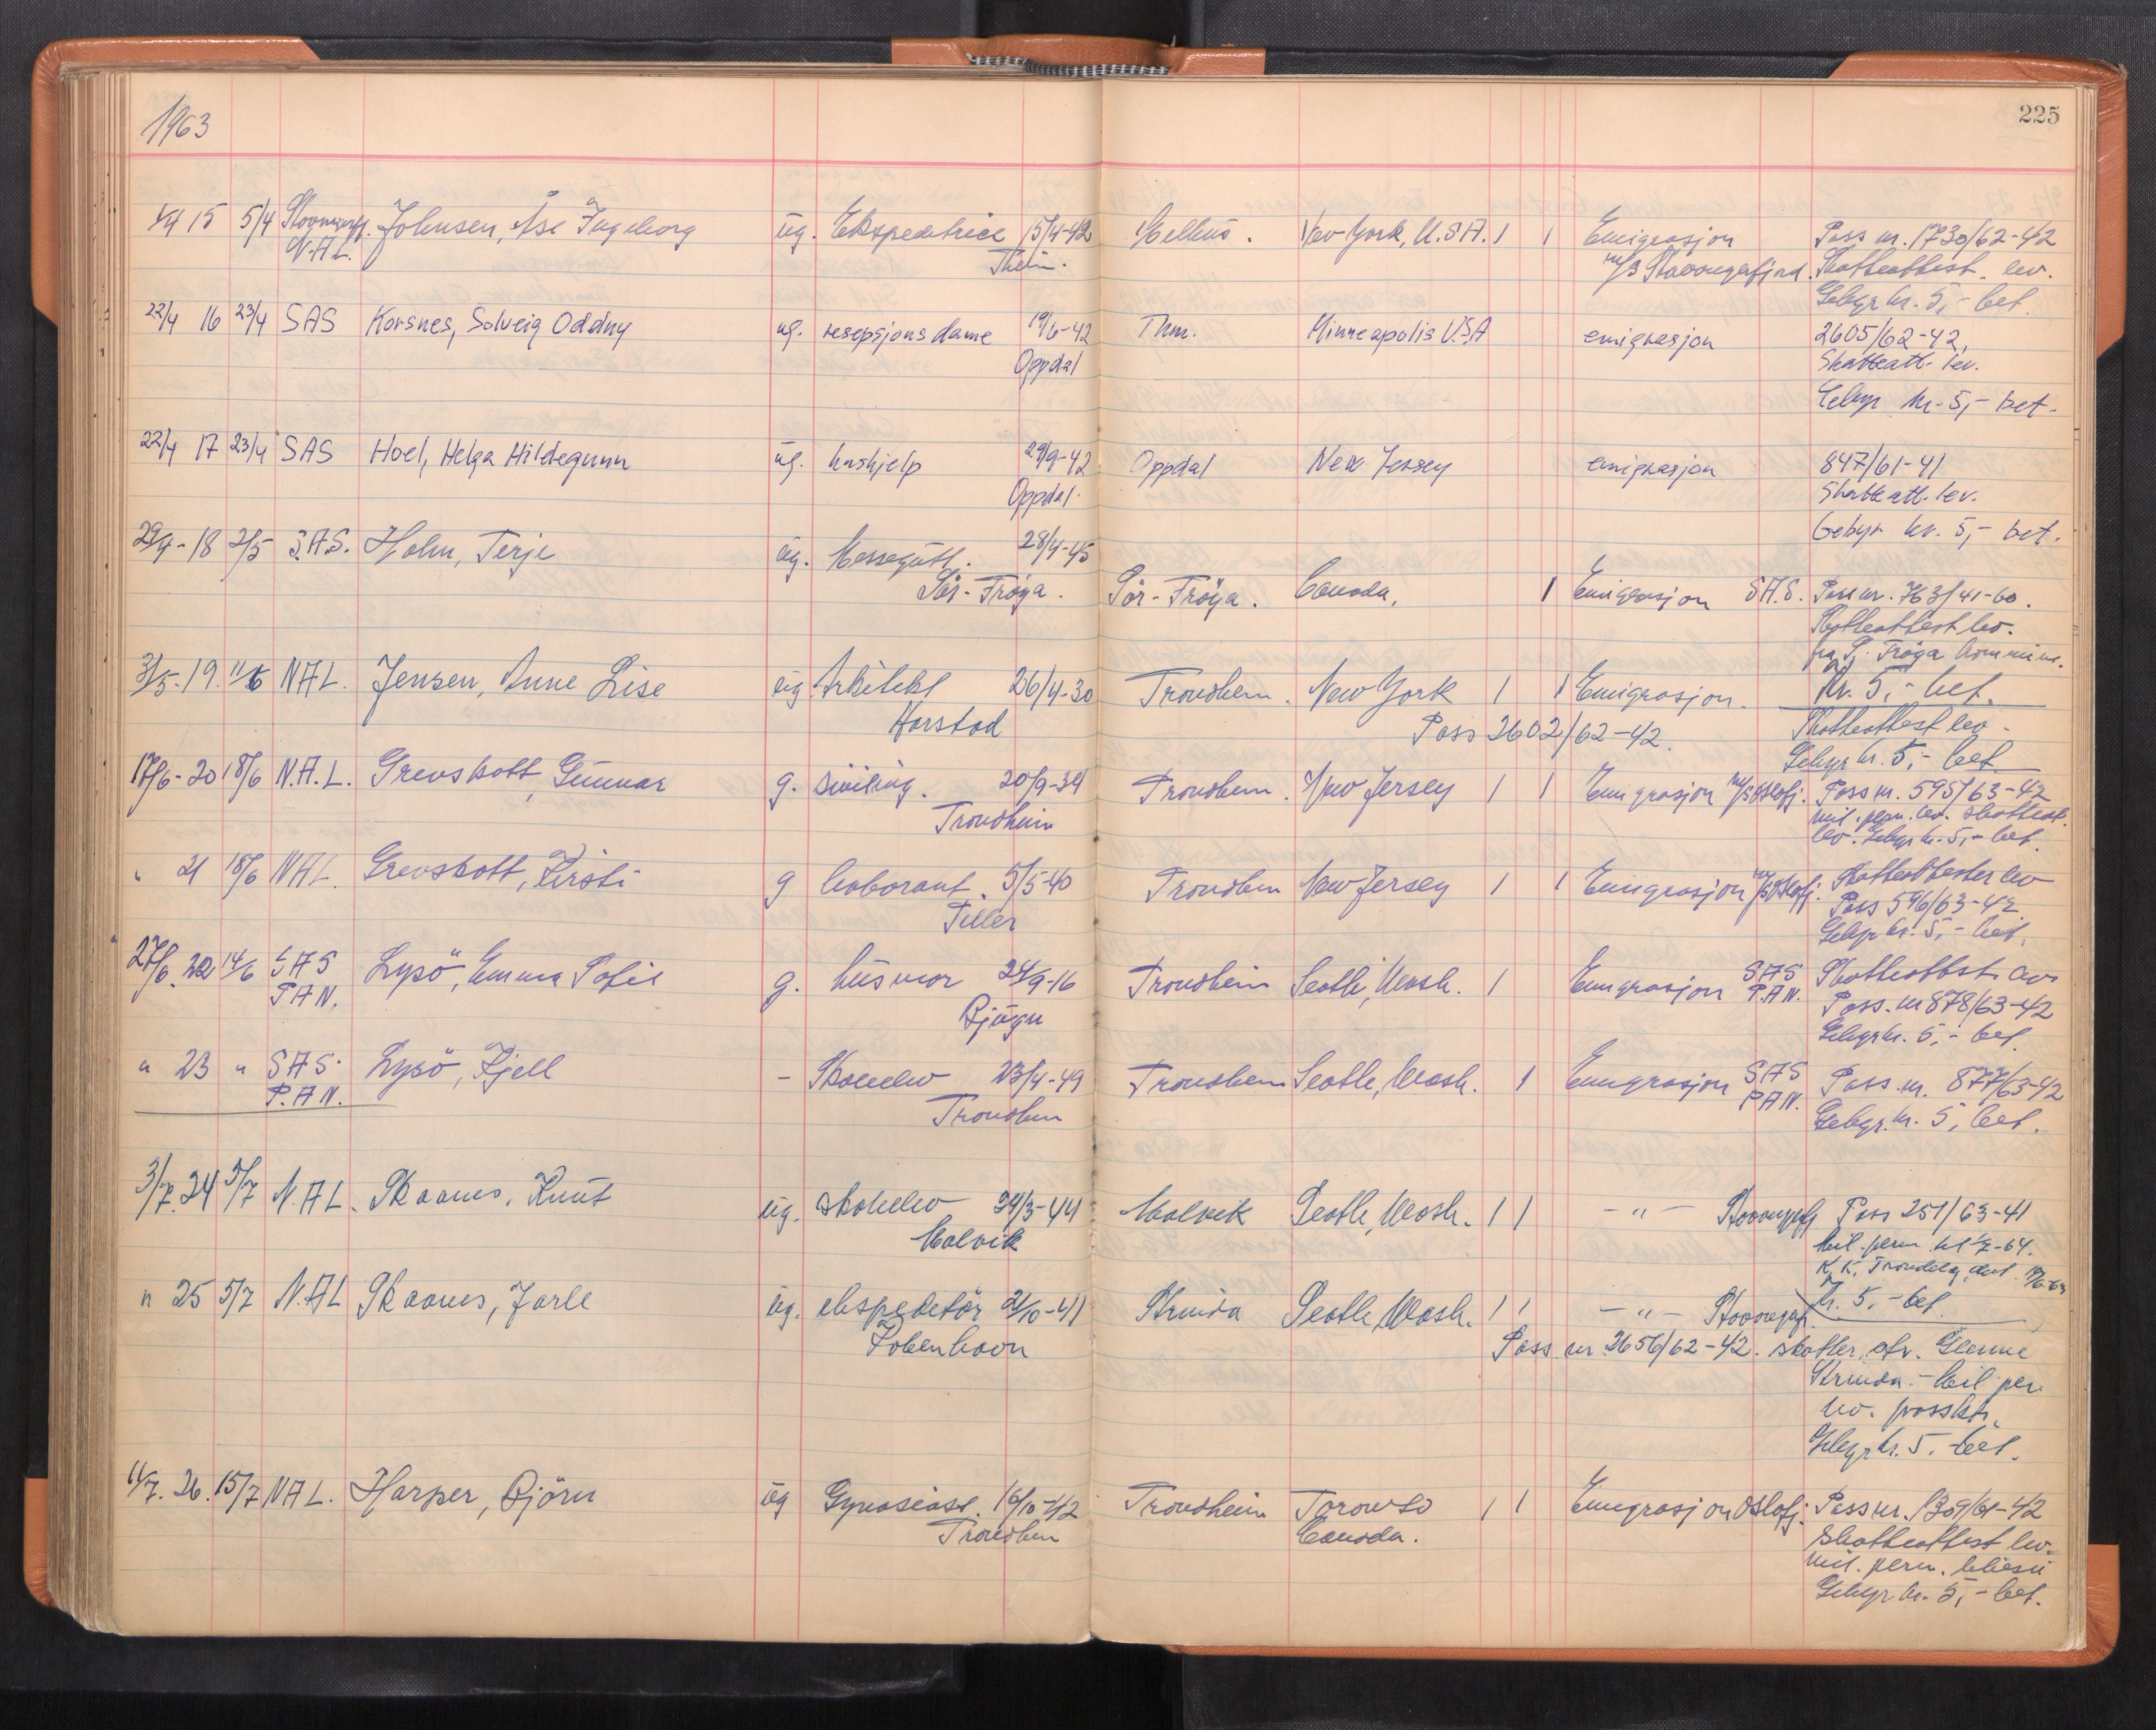 1963
225
15 5/4 Stavangerfj. Johnsen, Åse Ingeborg ug. Ekspeditrice 15/4-42 Melhus. New York, U.S.A. 1 1 Emigrasjon Pass nr. 1730/62-42
N.A.L. Theim. m/s Stavangerfjord. Skatteattest lev.
Gebyr kr. 5,- bet.
22/4 16 23/4 SAS Korsnes, Solveig Oddny ug. resepsjonsdame 19/6-42 Thm. Minneapolis USA emigrasjon 2605/62-42,
Oppdal Skatteatt. lev.
Gebyr kr. 5,- bet.
22/4 17 23/4 SAS Hoel, Helga Hildegunn ug. hushjelp 29/9-42 Oppdal New Jersey emigrasjon 847/61-41
Oppdal. Skatteatt. lev.
Gebyr kr. 5,- bet.
29/4-18 2/5 S.A.S. Holm, Terje ug. Messegutt. 28/4-45
Sör-Fröya. Sör-Fröya. Canada, 1 Emigrasjon S.A.S. Pass nr. 763/41-60.
Skatteattest lev.
fra S. Fröya kommune.
3/5-19. 11/6 N.A.L. Jensen, Anne Lise ug Arkitekt 26/4-30 Trondheim. New York 1 1 Emigrasjon. Kr. 5,- bet.
Harstad Pass 2602/62-42. Skatteattest lev.
Gebyr kr. 5,- bet.
17/6-20 18/6 N.A.L. Grevskott, Gunnar g. siviling. 20/9-34 Trondheim. New Jersey 1 1 Emigrasjon m/s Oslofj. Pass nr. 595/63-42
Trondheim mil. perm. lev. skatteat.
lev. Gebyr kr. 5,- bet.
" 21 18/6 NAL. Grevskott, Kirsti g laborant. 5/5-40 Trondheim New Jersey 1 1 Emigrasjon m/s Oslofj. Skatteattester lev
Tiller Pass 596/63-42
Gebyr kr. 5,- bet.
27/6. 22 14/6 SAS Lysö, Emma Sofie g. husmor 24/9-16 Trondheim Seattle, Wash. 1 Emigrasjon SAS Skatteattest lev
PAN. Bjugn P.A.N. Pass. nr 878/63-42
Gebyr kr. 5,- bet.
" 23 " SAS Lysö, Kjell - Skoleelev 23/4-49 Trondheim Seattle, Wash. 1 Emigrasjon SAS Pass. nr. 877/63-42
P.A.N. Trondheim PAN. Gebyr kr. 5, bet.
3/7. 24 5/7 N.A.L. Skaanes, Knut ug. skoleelev 24/3-44 Malvik Seattle, Wash. 1 1 - " - Stavangerfj Pass 251/63-41
Malvik Mil. perm. til 1/7-64.
25 5/7 N.A.L Skaanes, Jarle ug. ekspeditör 21/10-41 Strinda Seattle, Wash. 1 1 - " - Stavangerfj. kr. 5,- bet.
Kobenhavn Pass nr. 2656/62-42.
Strinda. - Mil. per
lev. passktr.
Gebyr kr. 5. bet.
11/7. 26. 15/7 NAL. Harper, Björn ug Gymnasiast. 16/10-42 Trondheim Toronto 1 1 Emigrasjon Oslofj. Pass nr. 1309/61-42
Trondheim Canada. Skatteattest lev.
mil. perm.
Gebyr kr. 5,- bet.